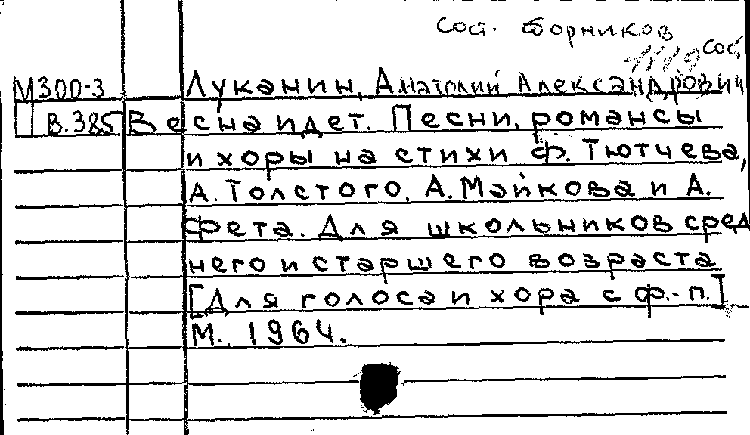 Сост. сборников
сост.
М300-3 Луканин, Анатолий Александрович
В.385 Весна идет. Песни, романсы
и хоры на стихи Ф. Тютчева,
А. Толстого, А. Майкова и А.
Фета. Для школьников сред
него и старшего возраста
[Для голоса и хора с ф.-п.]
М., 1964.